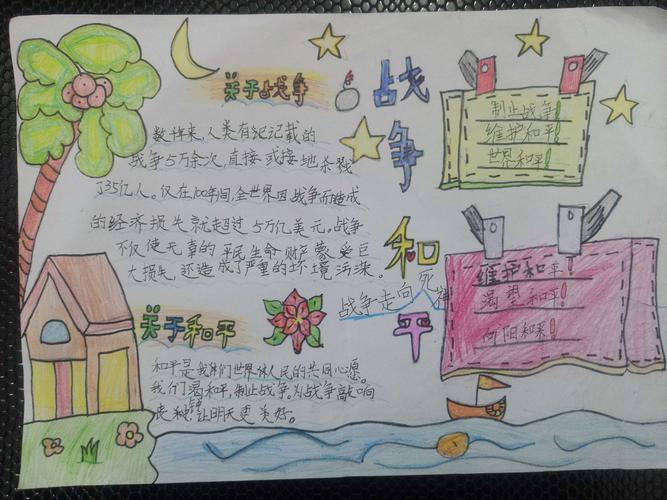 关于战争
数样来,人类有纪记载的
战争5万余次,直接或接地杀戮
了35亿人。仅在100年间,全世界因战争而造成
的经济损失就超过5万亿美元。战争
不仅使无辜的平民生命财产蒙受巨
大损失,还造成了严重的环境污染。
战争和平
战争走向死神
制止战争!
维护和平!
世界和平!
维护和平!
渴望和平!
向阳和平!
关于和平
和平是我们世界体人民的共同心愿。
我们渴和平,制止战争。为战争敲响
丧钟,让明天更美好。